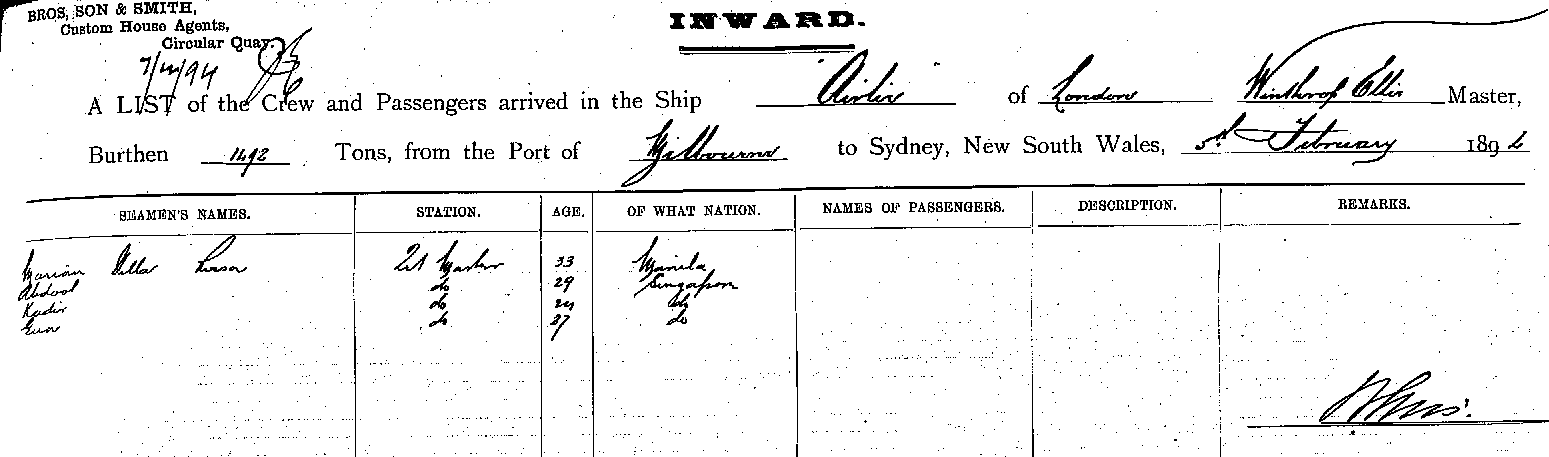 BROS, SON & SMITH,
Custom House Agents,
Circular Quay.
INWARD.
A LIST of the Crew and Passengers arrived in the Ship "Airlie" of London Winthrop Ellis Master,
Burthen 1492 Tons, from the Port of Melbourne to Sydney, New South Wales, February 189
SEAMEN'S NAMES. STATION. AGE. OF WHAT NATION. NAMES OF PASSENGERS. DESCRIPTION. REMARKS.
33 Manila
Abdool do 29 Singapore
Kadir do 24 do
do 37 do